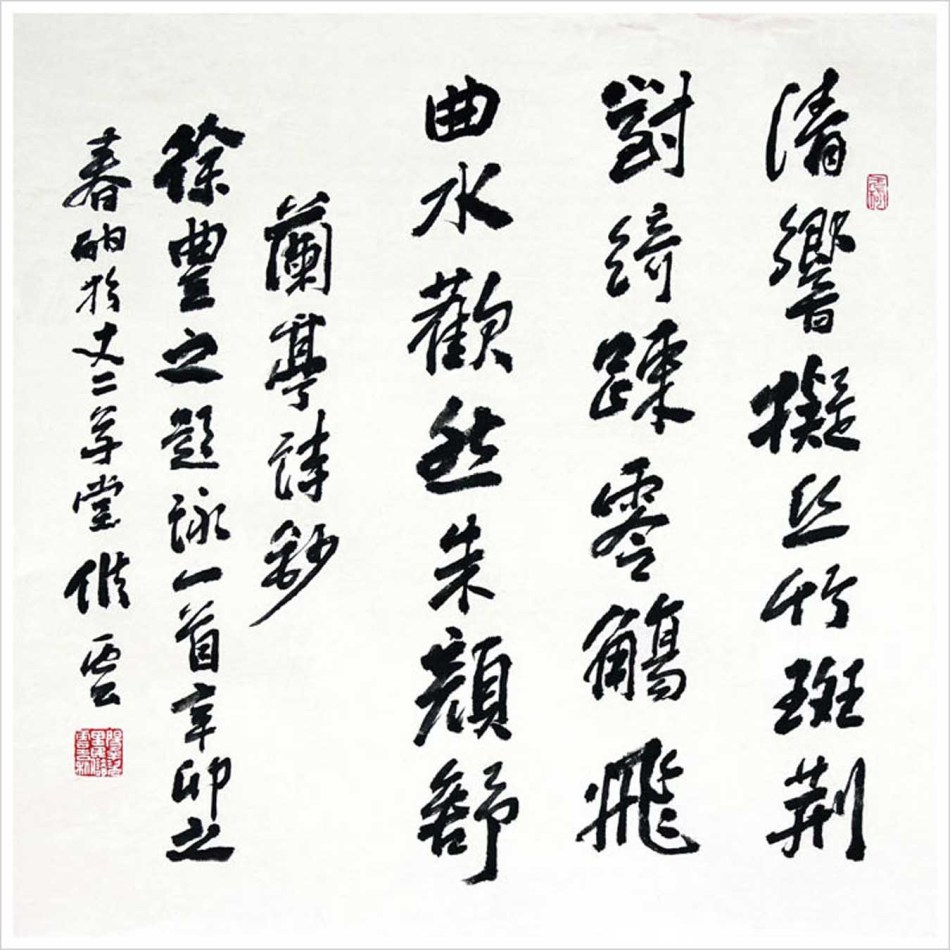 清響擬丝竹斑荆
對綺踈零觴飛
曲水歡然朱顔舒
蘭亭詩鈔
徐豊之題詠一首辛卯之
春於丈二草堂雲